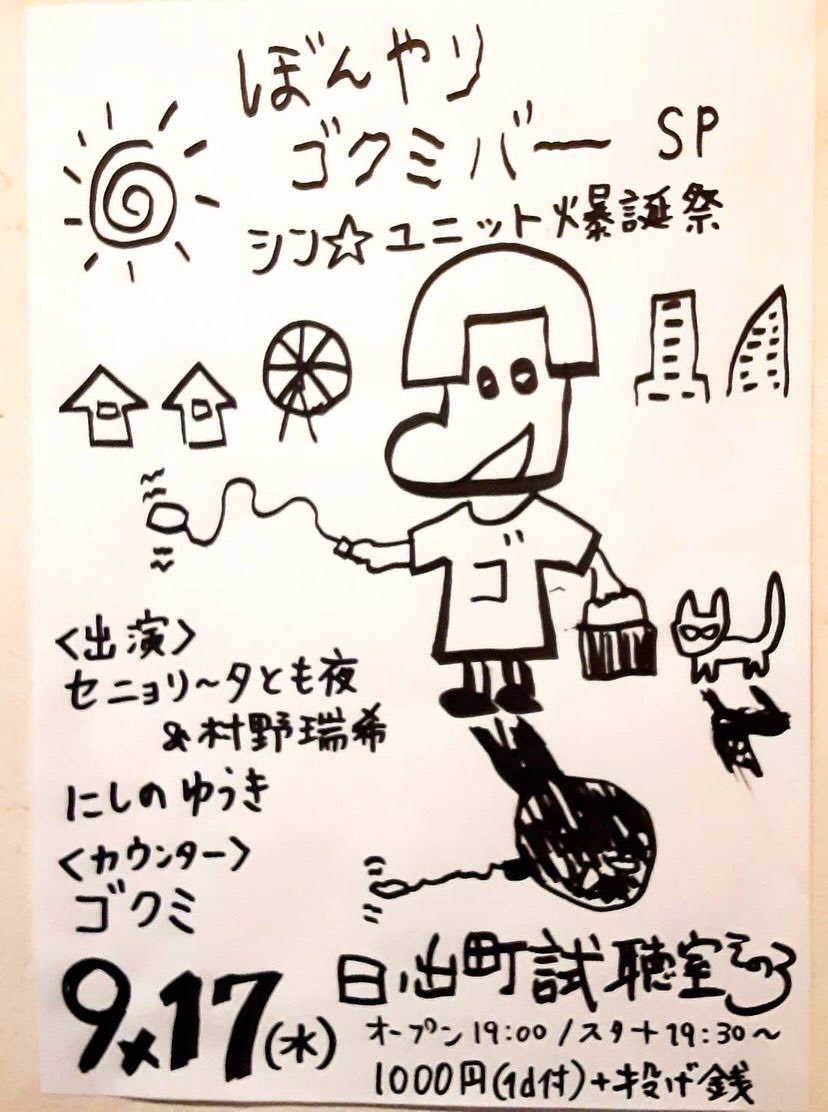 ぼんやり
ゴクミバー SP
シン☆ユニット爆誕祭
ゴ
<出演>
セニョリ〜タとも夜
&村野瑞希
にしのゆうき
<カウンター>
ゴクミ
9×17(水)
日ノ出町試聴室その3
オープン19:00/スタート19:30〜
1000円(1d付)+投げ銭